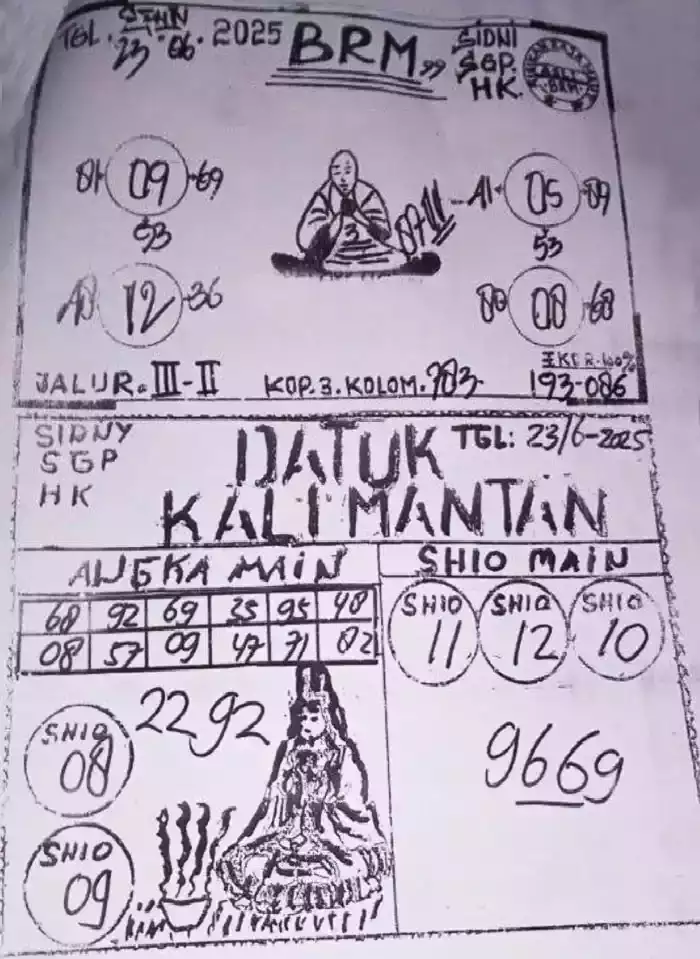 TGL. SENIN
23.06.2025
BRM,,
SIDNI
SGP.
HK.
BRM
09 -69
53
12 -36
07-11
A1- 05 -09
53
08 -68
JALUR. III-II
KOP. 3. KOLOM. 783.
EKER. 100%
193-086
SIDNY
SGP
HK
DATUK
KALIMANTAN
TGL: 23/6-2025
ANGKA MAIN
68 92 69 35 95 48
08 57 09 47 71 82
SHIO MAIN
SHIO 11
SHIO 12
SHIO 10
2292
SHIO 08
SHIO 09
9669